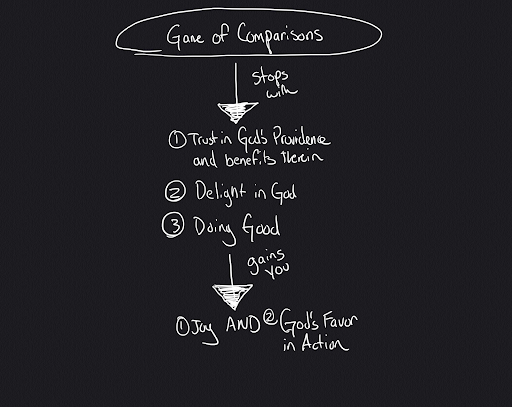 Game of Comparisons
stops
with
① Trust in God's Providence
and benefits therein
② Delight in God
③ Doing Good
gains
you
① Joy AND ② God's Favor
in Action